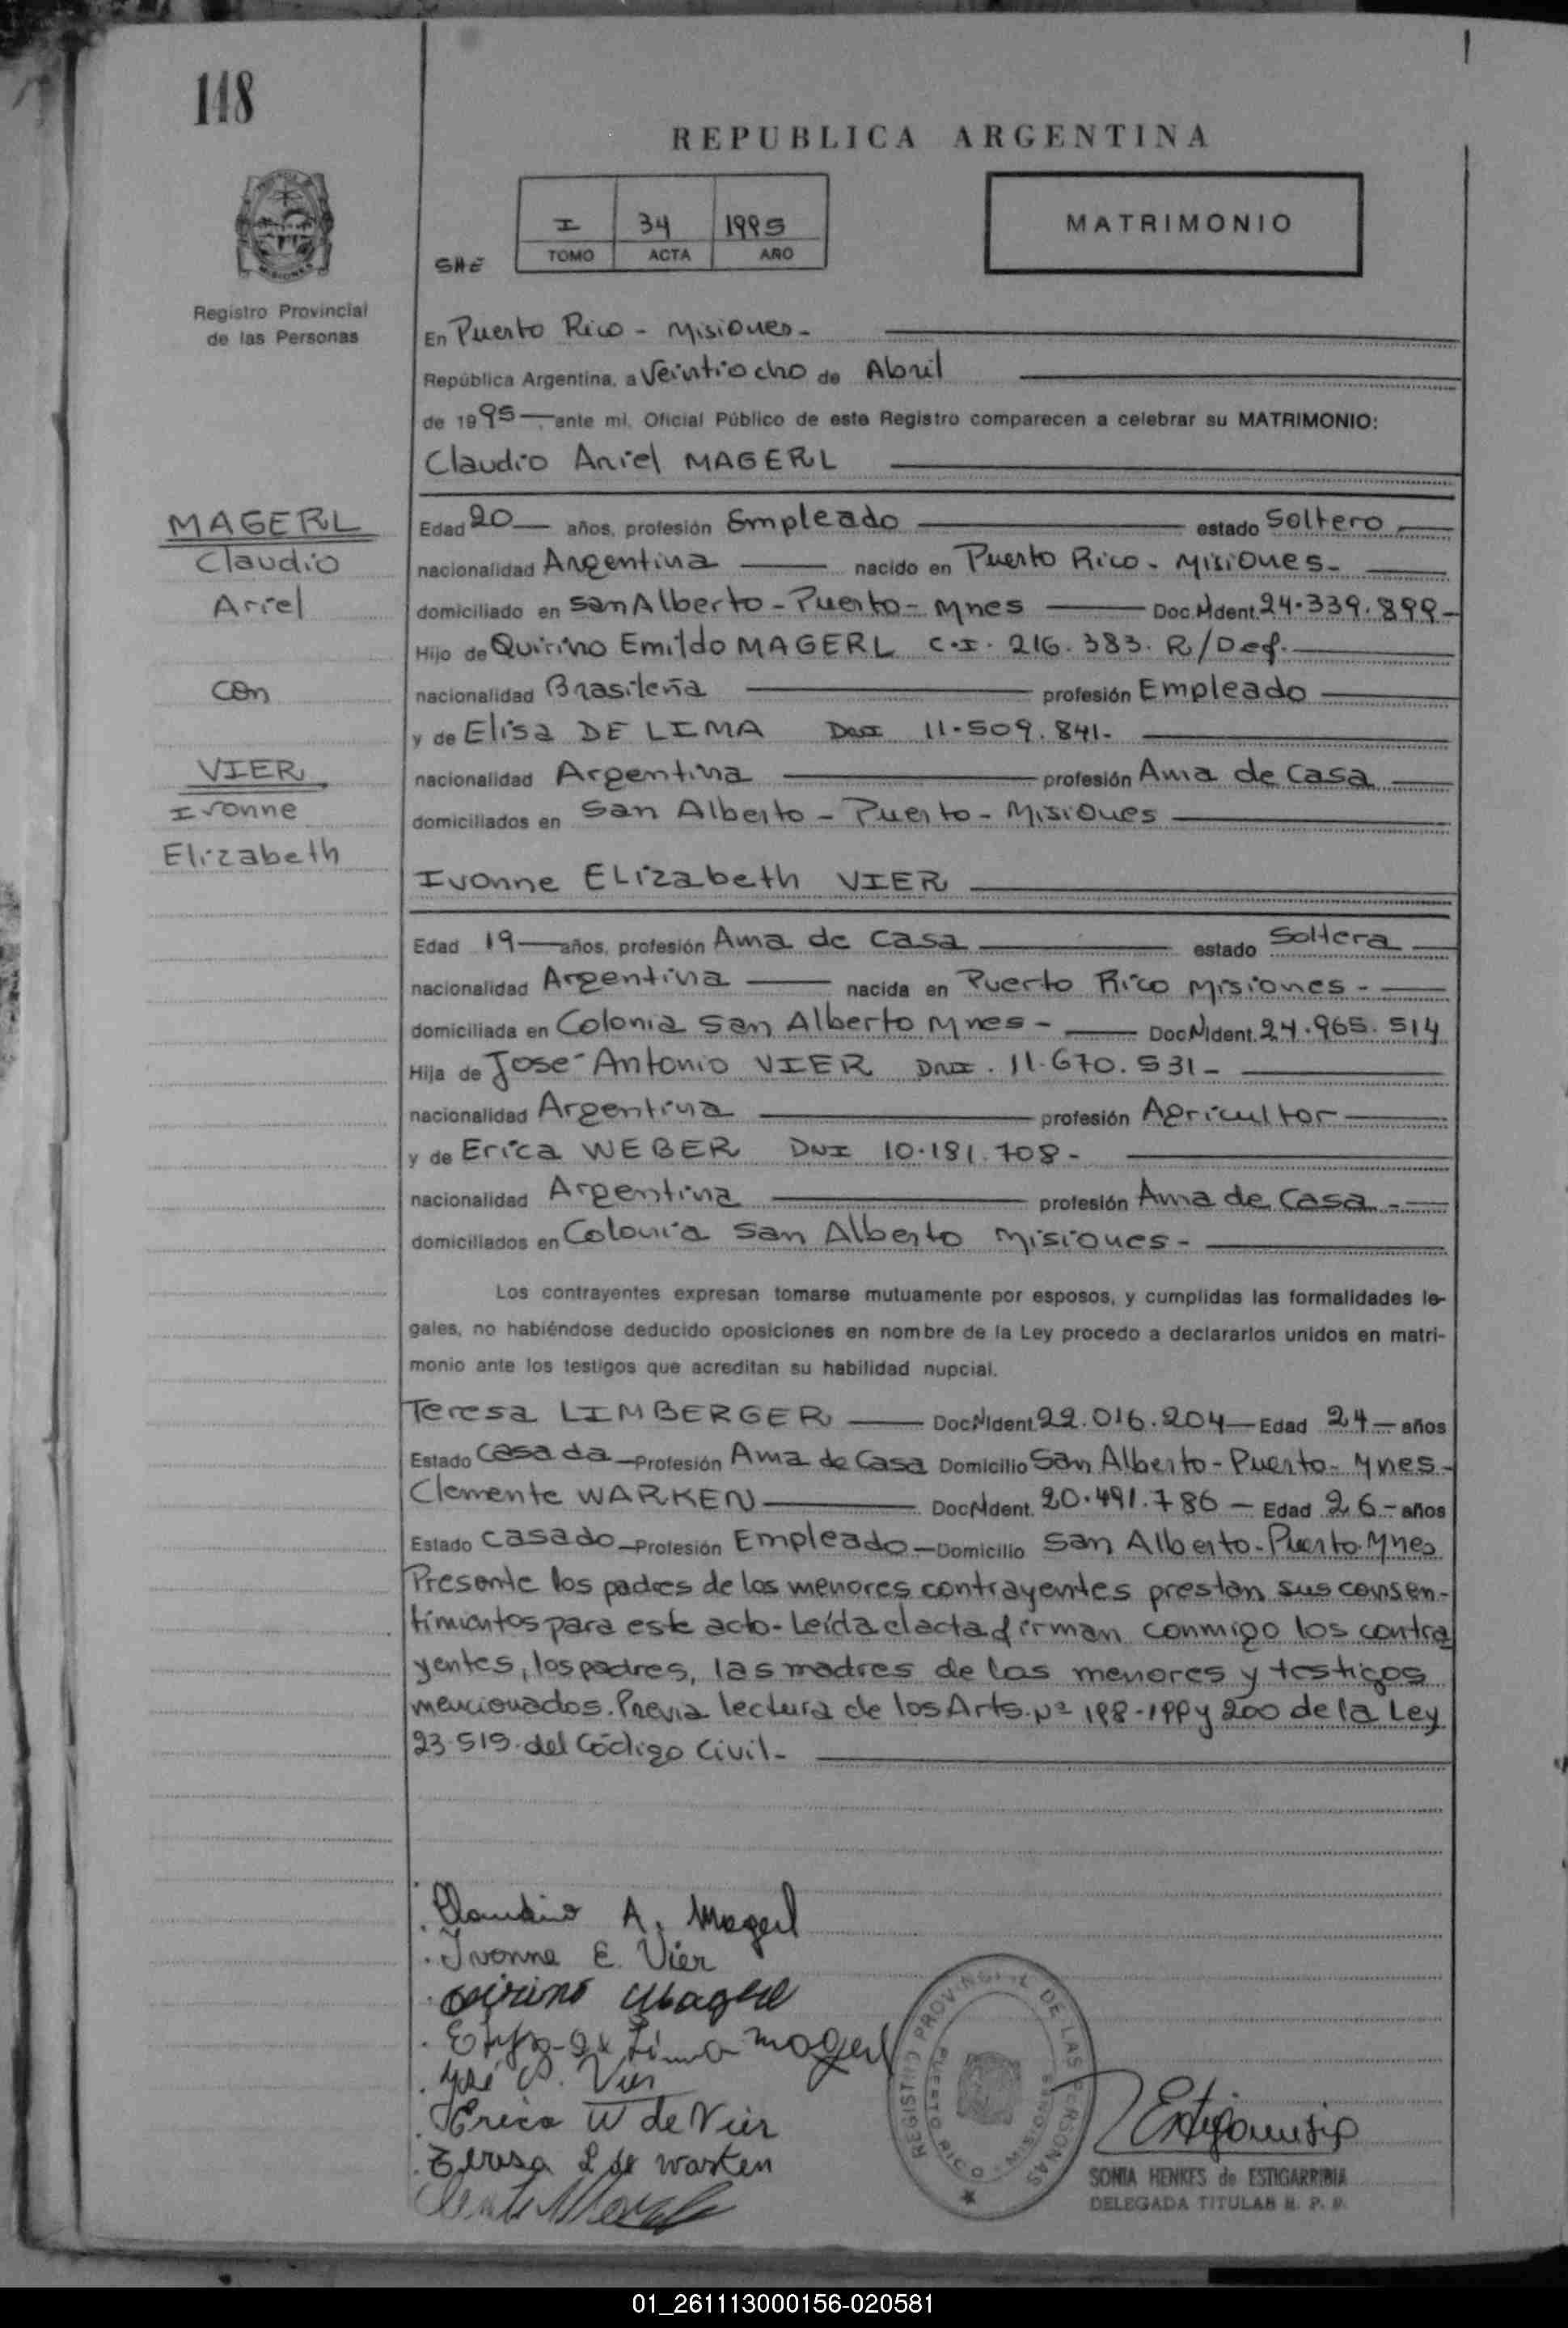 118
REPUBLICA ARGENTINA
I 34 1995
TOMO ACTA AÑO
MATRIMONIO
Registro Provincial
de las Personas
En Puerto Rico - Misiones -
República Argentina, a Veintiocho de Abril
de 1995 ante mí, Oficial Público de este Registro comparecen a celebrar su MATRIMONIO:
Claudio Ariel MAGERL
MAGERL
Claudio
Ariel
con
VIER
Ivonne
Elizabeth
Edad 20 años, profesión Empleado estado Soltero
nacionalidad Argentina nacido en Puerto Rico - Misiones -
domiciliado en San Alberto - Puerto - Mnes Doc. N Ident. 24.339.899 -
Hijo de Quirino Emildo MAGERL C.I. 216.383. R/Def.
nacionalidad Brasileña profesión Empleado
y de Elisa DE LIMA DNI 11.509.841 -
nacionalidad Argentina profesión Ama de Casa
domiciliados en San Alberto - Puerto - Misiones
Ivonne Elizabeth VIER
Edad 19 años, profesión Ama de Casa estado Soltera
nacionalidad Argentina nacida en Puerto Rico Misiones -
domiciliada en Colonia San Alberto Mnes - Doc N Ident. 24.965.514
Hija de José Antonio VIER DNI. 11.670.531 -
nacionalidad Argentina profesión Agricultor
y de Erica WEBER DNI 10.181.708 -
nacionalidad Argentina profesión Ama de Casa -
domiciliados en Colonia San Alberto Misiones -
Los contrayentes expresan tomarse mutuamente por esposos, y cumplidas las formalidades le-
gales, no habiéndose deducido oposiciones en nombre de la Ley procedo a declararlos unidos en matri-
monio ante los testigos que acreditan su habilidad nupcial.
Teresa LIMBERGER Doc. N Ident. 22.016.204 Edad 24 años
Estado Casada Profesión Ama de Casa Domicilio San Alberto - Puerto - Mnes -
Clemente WARKEN Doc N Ident. 20.491.786 Edad 26 años
Estado Casado Profesión Empleado Domicilio San Alberto - Puerto Mnes
Presente los padres de los menores contrayentes prestan sus consen-
timientos para este acto - Leída el acta firman conmigo los contra
yentes, los padres, las madres de los menores y testigos
mencionados. Previa lectura de los Arts. Nº 198-199 y 200 de la Ley
23.515. del Código Civil -
Claudio A. Magerl
Ivonne E. Vier
Quirino Magerl
Elisa de Lima Magerl
José A. Vier
Erica W de Vier
Teresa L de Warken
REGISTRO PROVINCIAL DE LAS PERSONAS
PUERTO RICO - MISIONES
SONIA HENKES de ESTIGARRIBIA
DELEGADA TITULAR R. P. P.
01_261113000156-020581